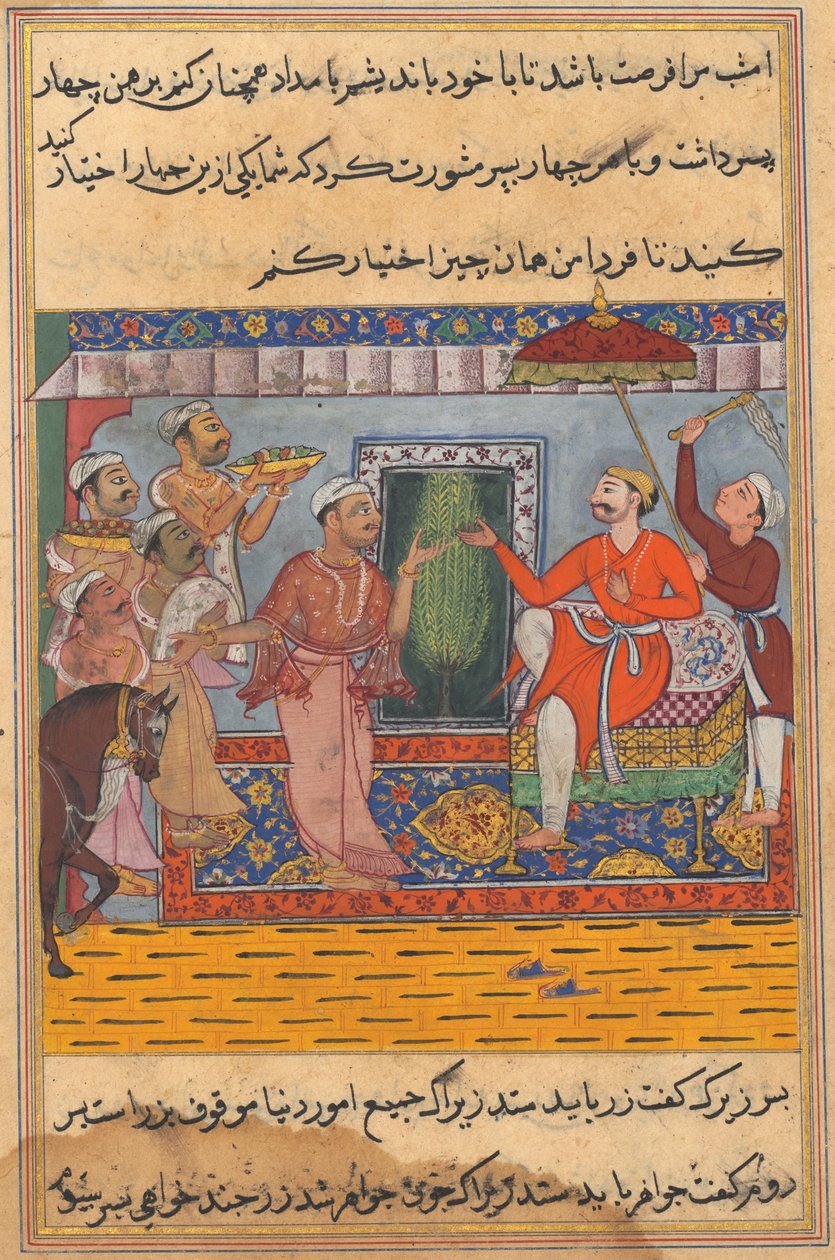 امشب مرا فرصت باشد تا با خود باندیشم بامداد همچنان کنم برهمن چهار
پسر داشت و با هر چهار پسر مشورت کرد که شما یکی ازین چهار اختیار کنید
کنید تا فردا من همان چیز اختیار کنم
پسر زیرک گفت زر باید ستد زیراکه جمیع امور دنیا موقوف بزر است پسر
دوم گفت جواهر باید ستد زیراکه چون جواهر شد زر چند خواهی پسر سیوم